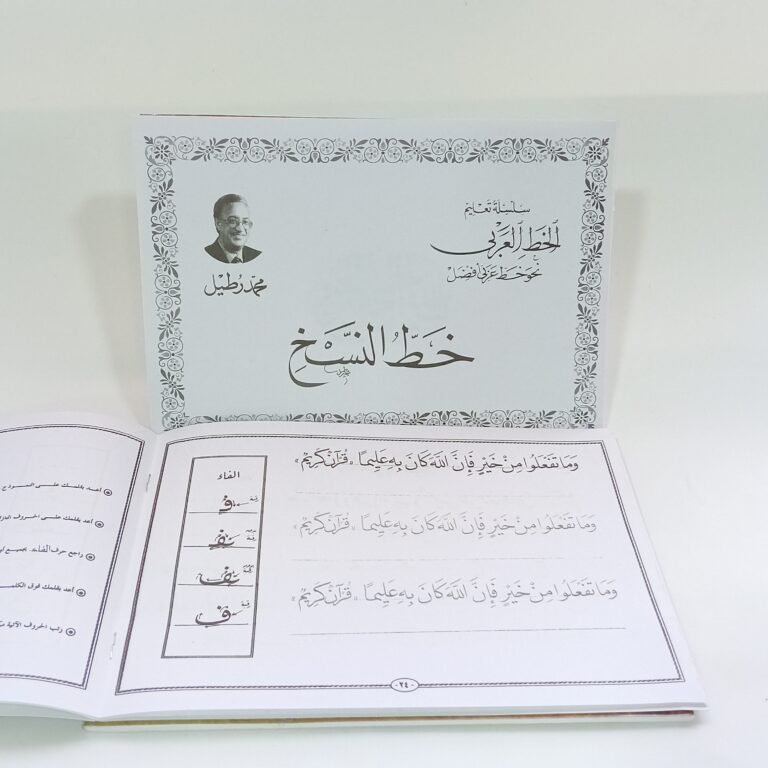 سلسلة تعليم
الخط العربي
نحو خط عربي أفضل
محمد رطيل
خط النسخ
وَمَا تَفْعَلُوا مِنْ خَيْرٍ فَإِنَّ اللَّهَ كَانَ بِهِ عَلِيمًا «قُرْآنٌ كَرِيمٌ»
وَمَا تَفْعَلُوا مِنْ خَيْرٍ فَإِنَّ اللَّهَ كَانَ بِهِ عَلِيمًا «قُرْآنٌ كَرِيمٌ»
وَمَا تَفْعَلُوا مِنْ خَيْرٍ فَإِنَّ اللَّهَ كَانَ بِهِ عَلِيمًا «قُرْآنٌ كَرِيمٌ»
الفاء
ف
-٢٤-
أعد بقلمك على النموذج
أعد بقلمك على الحروف
راجع حرف الفاء بجميع
أعد بقلمك فوق
رتب الحروف الآتية